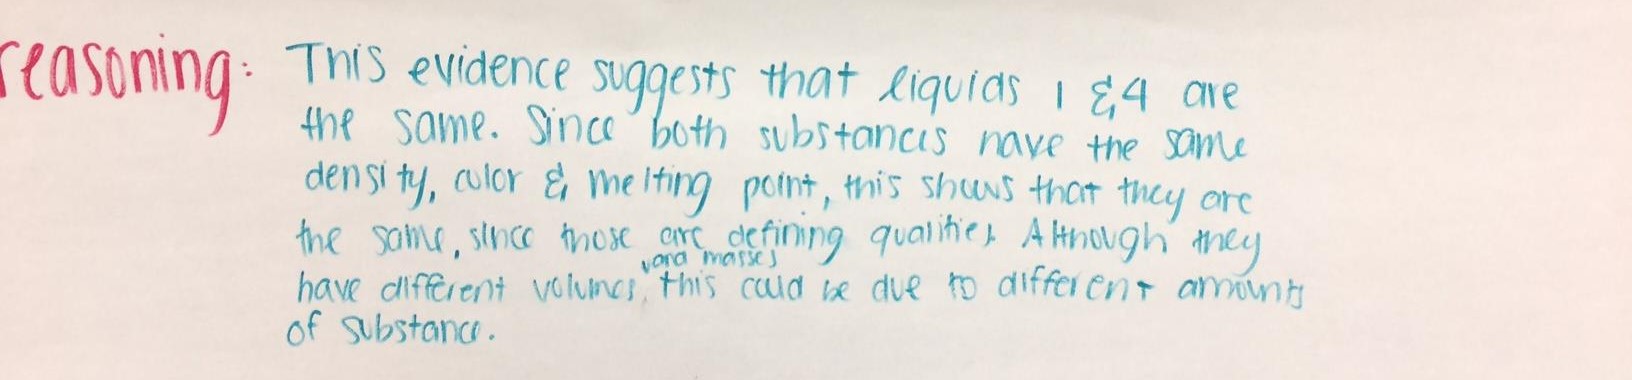 reasoning: This evidence suggests that liquids 1 & 4 are
the same. Since both substances have the same
density, color & melting point, this shows that they are
the same, since those are defining qualities. Although they
have different volumes and masses, this could be due to different amounts
of substance.